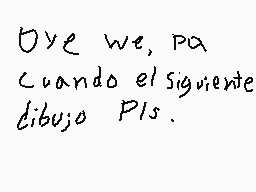 Oye we, pa
cuando el siguiente
dibujo Pls.